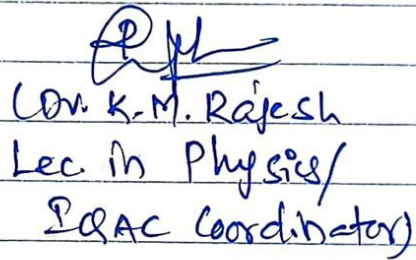 (Dr. K.M. Rajesh
Lec. in Physics/
IQAC Coordinator)